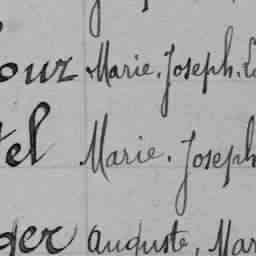 our Marie. Joseph. L
tel Marie. Joseph
ger Auguste, Mar